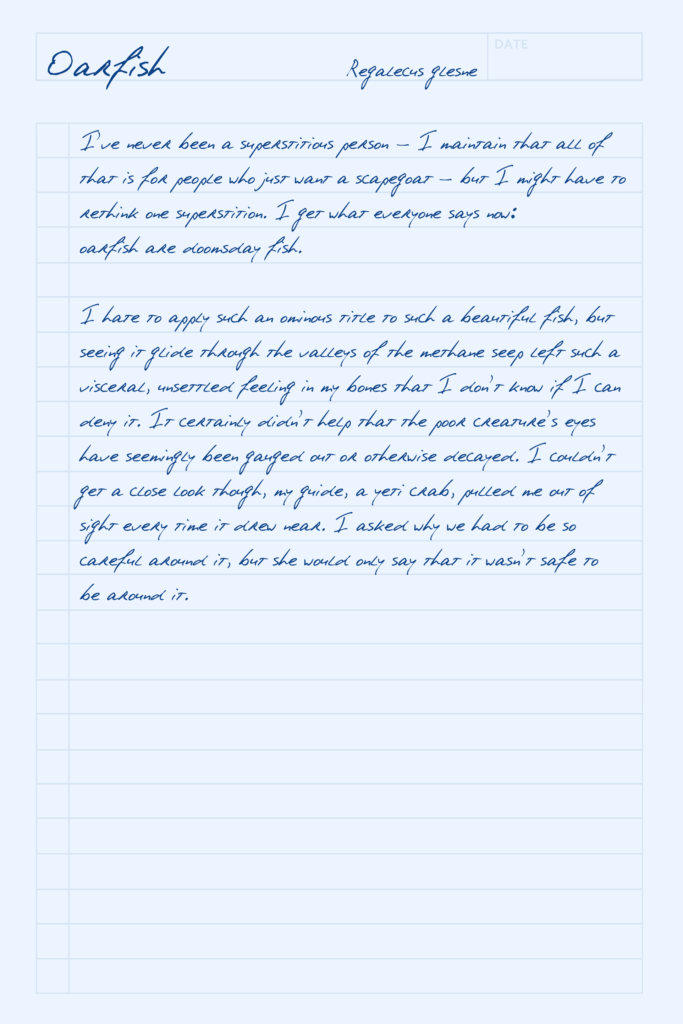 Oarfish
Regalecus glesne
DATE
I've never been a superstitious person — I maintain that all of
that is for people who just want a scapegoat — but I might have to
rethink one superstition. I get what everyone says now:
oarfish are doomsday fish.
I hate to apply such an ominous title to such a beautiful fish, but
seeing it glide through the valleys of the methane seep left such a
visceral, unsettled feeling in my bones that I don't know if I can
deny it. It certainly didn't help that the poor creature's eyes
have seemingly been gauged out or otherwise decayed. I couldn't
get a close look though, my guide, a yeti crab, pulled me out of
sight every time it drew near. I asked why we had to be so
careful around it, but she would only say that it wasn't safe to
be around it.